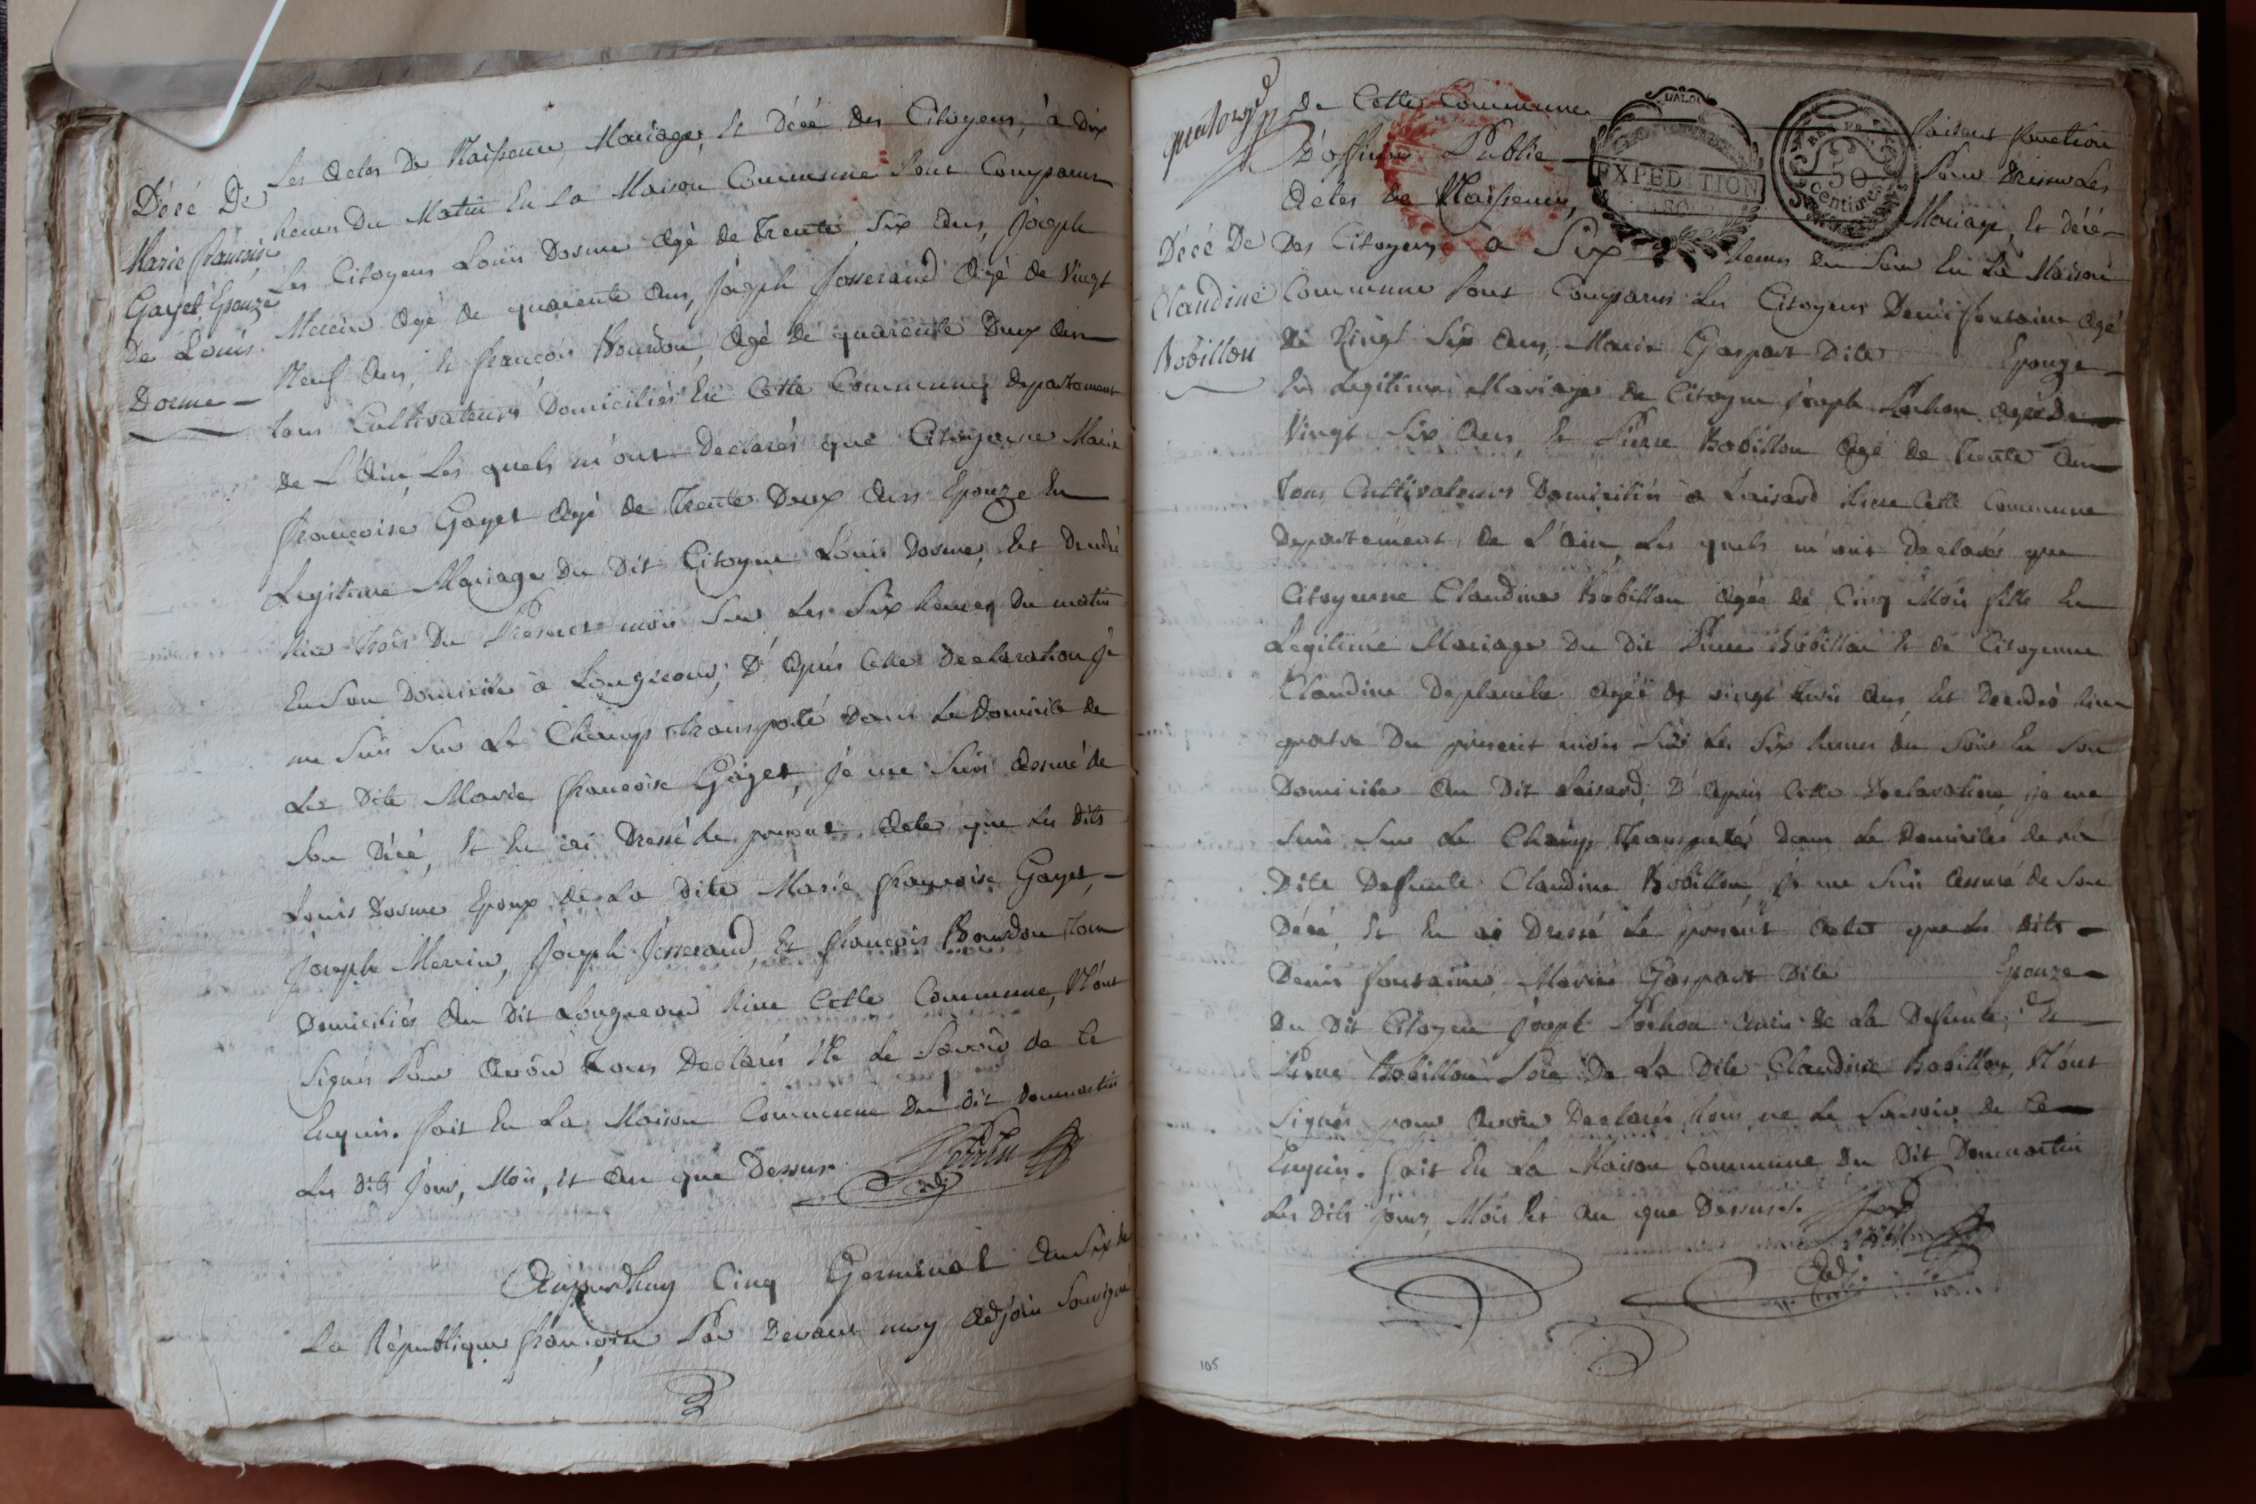 Les Actes de Naissance, Mariage, Et Décé des Citoyens, à dix
Décé De
Marie françoise
Gayet Epouze
De Louis
Dosme
heures Du Matin En La Maison Commune Sont Comparus
Les Citoyens Louis Dosme agé de Trente Six ans, Joseph
Mercin agé de quarente ans, Joseph Josserand Agé de Vingt
Neuf Ans, Et françois Bourdon, Agé de quarente Deux ans
tous Cultivateurs Domiciliés En Cette Commune, departement
de L'Ain, Les quels m'ont Declarés que Citoyenne Marie
françoise Gayet agé de Trente Deux Ans Epouze En
Legitime Mariage Du Dit Citoyen Louis Dosme, Est Decedé
hier trois Du Present mois Sur Les Six heures Du matin
En Son Domicile à Longecour, D'Après Cette Declaration Je
me Suis Sur Le Champ transporté Dans Le Domicile de
La Dite Marie françoise Gayet, Je me Suis assuré de
Son Décé, Et En ai Dressé Le present Acte que Les Dits
Louis Dosme Epoux de La Dite Marie françoise Gayet,
Joseph Mercin, Joseph Josserand, Et françois Bourdon tous
Domiciliés Au Dit Longecour Rière Cette Commune, N'ont
Signés Pour Avoir tous Declarés Ne Le Savoir de Ce
Enquis. fait En La Maison Commune Du Dit Dommartin
Les Dits Jour, Mois, Et An que Dessus.
adj
Aujourdhuy Cinq Germinal An Six de
La République françoise Par Devant moy Adjoin Soussigné
quatorze
de Cette Commune faisant fonction
D'officier Public Pour Dresser Les
EXPEDITION
50
centimes
Actes de Naissance, Mariage, Et décé
Décé De
Claudine
Bobillon
Des Citoyens à Six heures du Soir En La Maison
Commune Sont Comparus Les Citoyens Denis fontaine Agé
de Vingt Six Ans, Marie Gaspart Dite Epouze
En Legitime Mariage de Citoyen Joseph Pochon agée De
Vingt Six Ans, Et Pierre Bobillon Agé de Trente Ans
tous Cultivateurs Domiciliés à Loisard Rière Cette Commune
Departement de L'ain, Les quels m'ont Declarés que
Citoyenne Claudine Bobillon Agée de Cinq Mois fille En
Legitime Mariage Du Dit Pierre Bobillon Et de Citoyenne
Claudine Deplanche Agée de vingt trois Ans, Est Decedée hier
quatre Du present mois Sur Les Six heures du Soir En Son
Domicile Au Dit Loisard, D'Après Cette Declaration, je me
Suis Sur Le Champ Transporté dans Le Domicile de La
Dite Defunte Claudine Bobillon, Je me Suis Assuré de Son
Décé, Et En ai Dressé Le present Acte que Les Dits
Denis fontaine, Marie Gaspart Dite Epouze
Du Dit Citoyen Joseph Pochon Amis de La Defunte, Et
Pierre Bobillon Père De La Dite Claudine Bobillon, N'ont
Signés pour Avoir Declarés tous ne Le Savoir de Ce
Enquis. fait En La Maison Commune Du Dit Dommartin
Les Dits Jour, Mois Et An que Dessus.
adj
105